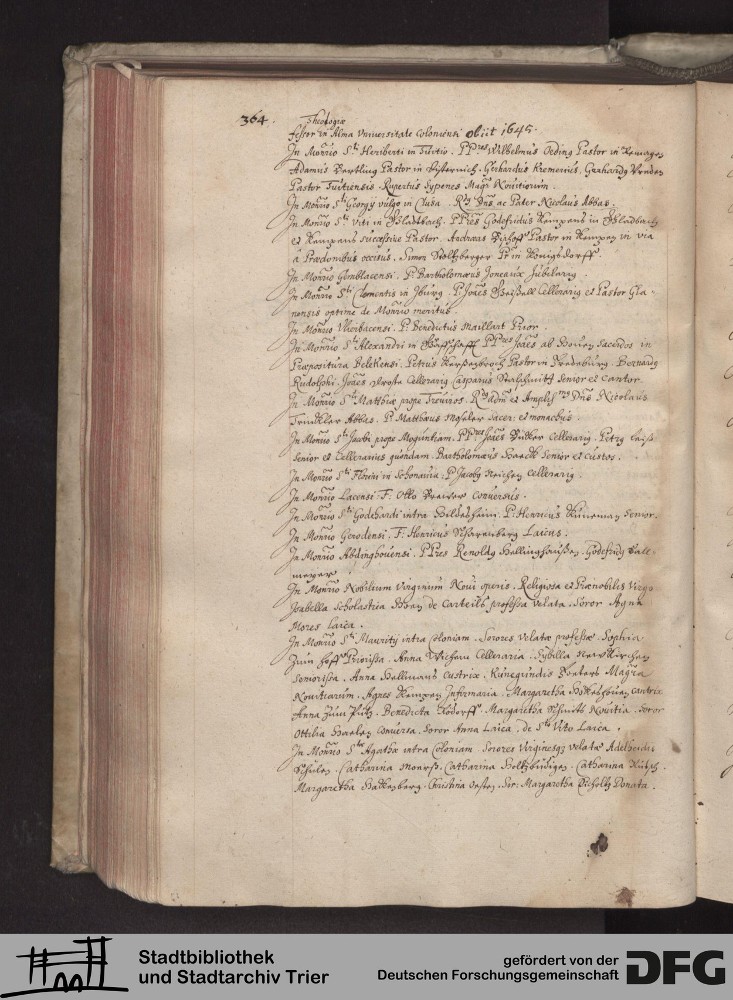 364.
Theologiæ
fessor in Alma Universitate Coloniensi obiit 1645.
In Monrio Sti Heriberti in Tuitio. PPres Wilhelmus Oeding Pastor in Remagen
Adamus Bertling Pastor in Gerhardus Kremerius, Gerhardus Vreden
Pastor Tuitiensis, Rupertus Sypenes Magr Novitiorum.
In Monrio Sti Georgy vulgo in Clusa. Rdus Dnus ac Pater Nicolaus Abbas.
In Monrio Sti Viti in Gladbach. PPres Godefridus Kempens in Gladbach
et Kempens successive Pastor. Andreas Bischoff Pastor in Kempen in via
à Prædonibus occisus. Simon Stoltzberger Pr in Konigsdorff.
In Monrio Gemblacensi. P. Bartholomæus Joneaux Jubilarius.
In Monrio Sti Clementis in Iburg. P. Joães Cellerarius et Pastor Gla-
nensis optime de Monrio meritus.
In Monrio P. Benedictus Maillart Prior.
In Monrio Sti Alexandri in Graffschaff PPres Joães ab Boven Sacerdos in
Præpositura Belekensi. Petrus Pastor in Fredeburg. Bernardus
Rudolphi. Joães Droste Cellerarius Casparus Stalschmitt Senior et Cantor.
In Monrio Sti Matthiæ prope Treviros. Rdus adm et Ampliss Dnus Nicolaus
Trinkler Abbas. P. Matthæus Moseler Sacer: et monachus.
In Monrio Sti Jacobi prope Moguntiam. PPres Joães Cellerarius. Petrus
Senior et Cellerarius quondam. Bartholomæus Senior et Custos.
In Monrio Sti Florini in Schonavia. P Jacobus Reichen Cellerarius
In Monrio Lacensi F. Otto conversus.
In Monrio Sti Godehardi intra Hildesheim. P. Henricus Küneman Senior.
In Monrio Gerodensi. F. Henricus Scharenberg Laicus.
In Monrio Abdinghovensi. PPres Renoldus Hellinghaußen. Godefridus Valc-
meyer
In Monrio Nobilium Virginum Novi operis. Religiosa et Prænobilis Virgo
Isabella Scholastica de Carteils professa Velata. Soror Agnes
Mores Laica.
In Monrio Sti Maurity intra Coloniam. Sorores Velatæ professæ. Sophia
zum Hoff Priorissa. Anna Wichem Celleraria. Sybilla Newkirchen
Seniorissa. Anna Hellmans Custrix. Kunegundis Magra
Novitiarum. Agnes Kempen Infirmaria. Margaretha Cantrix
Anna zum Pütz. Benedicta Rodorff. Margaretha Schmitt Novitia. Soror
Ottilia Haelen Conversa. Soror Anna Laica, de Sto Vito Laica.
In Monrio Stæ Agathæ intra Coloniam. Sorores Virginesque velatæ Adelheidis
Schülen. Catharina Catharina Holtzbüdigen. Catharina
Margaretha Hackenberg. Christina Sor: Margaretha Donata.
Stadtbibliothek
und Stadtarchiv Trier
gefördert von der
Deutschen Forschungsgemeinschaft
DFG